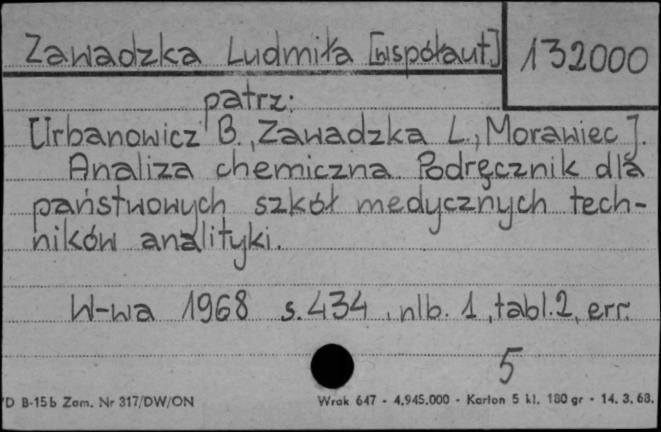 Zawadzka Ludmiła [współaut.] 132000
patrz:
Urbanowicz B., Zawadzka L., Morawiec J.
Analiza chemiczna. Podręcznik dla
państwowych szkół medycznych tech-
ników analityki.
W-wa 1968 s. 434, nlb. 1, tabl. 2, err.
5
D B-15b Zam. Nr 317/DW/ON Wrak 647 - 4.945.000 - Karton 5 kl. 180 gr - 14. 3. 68.